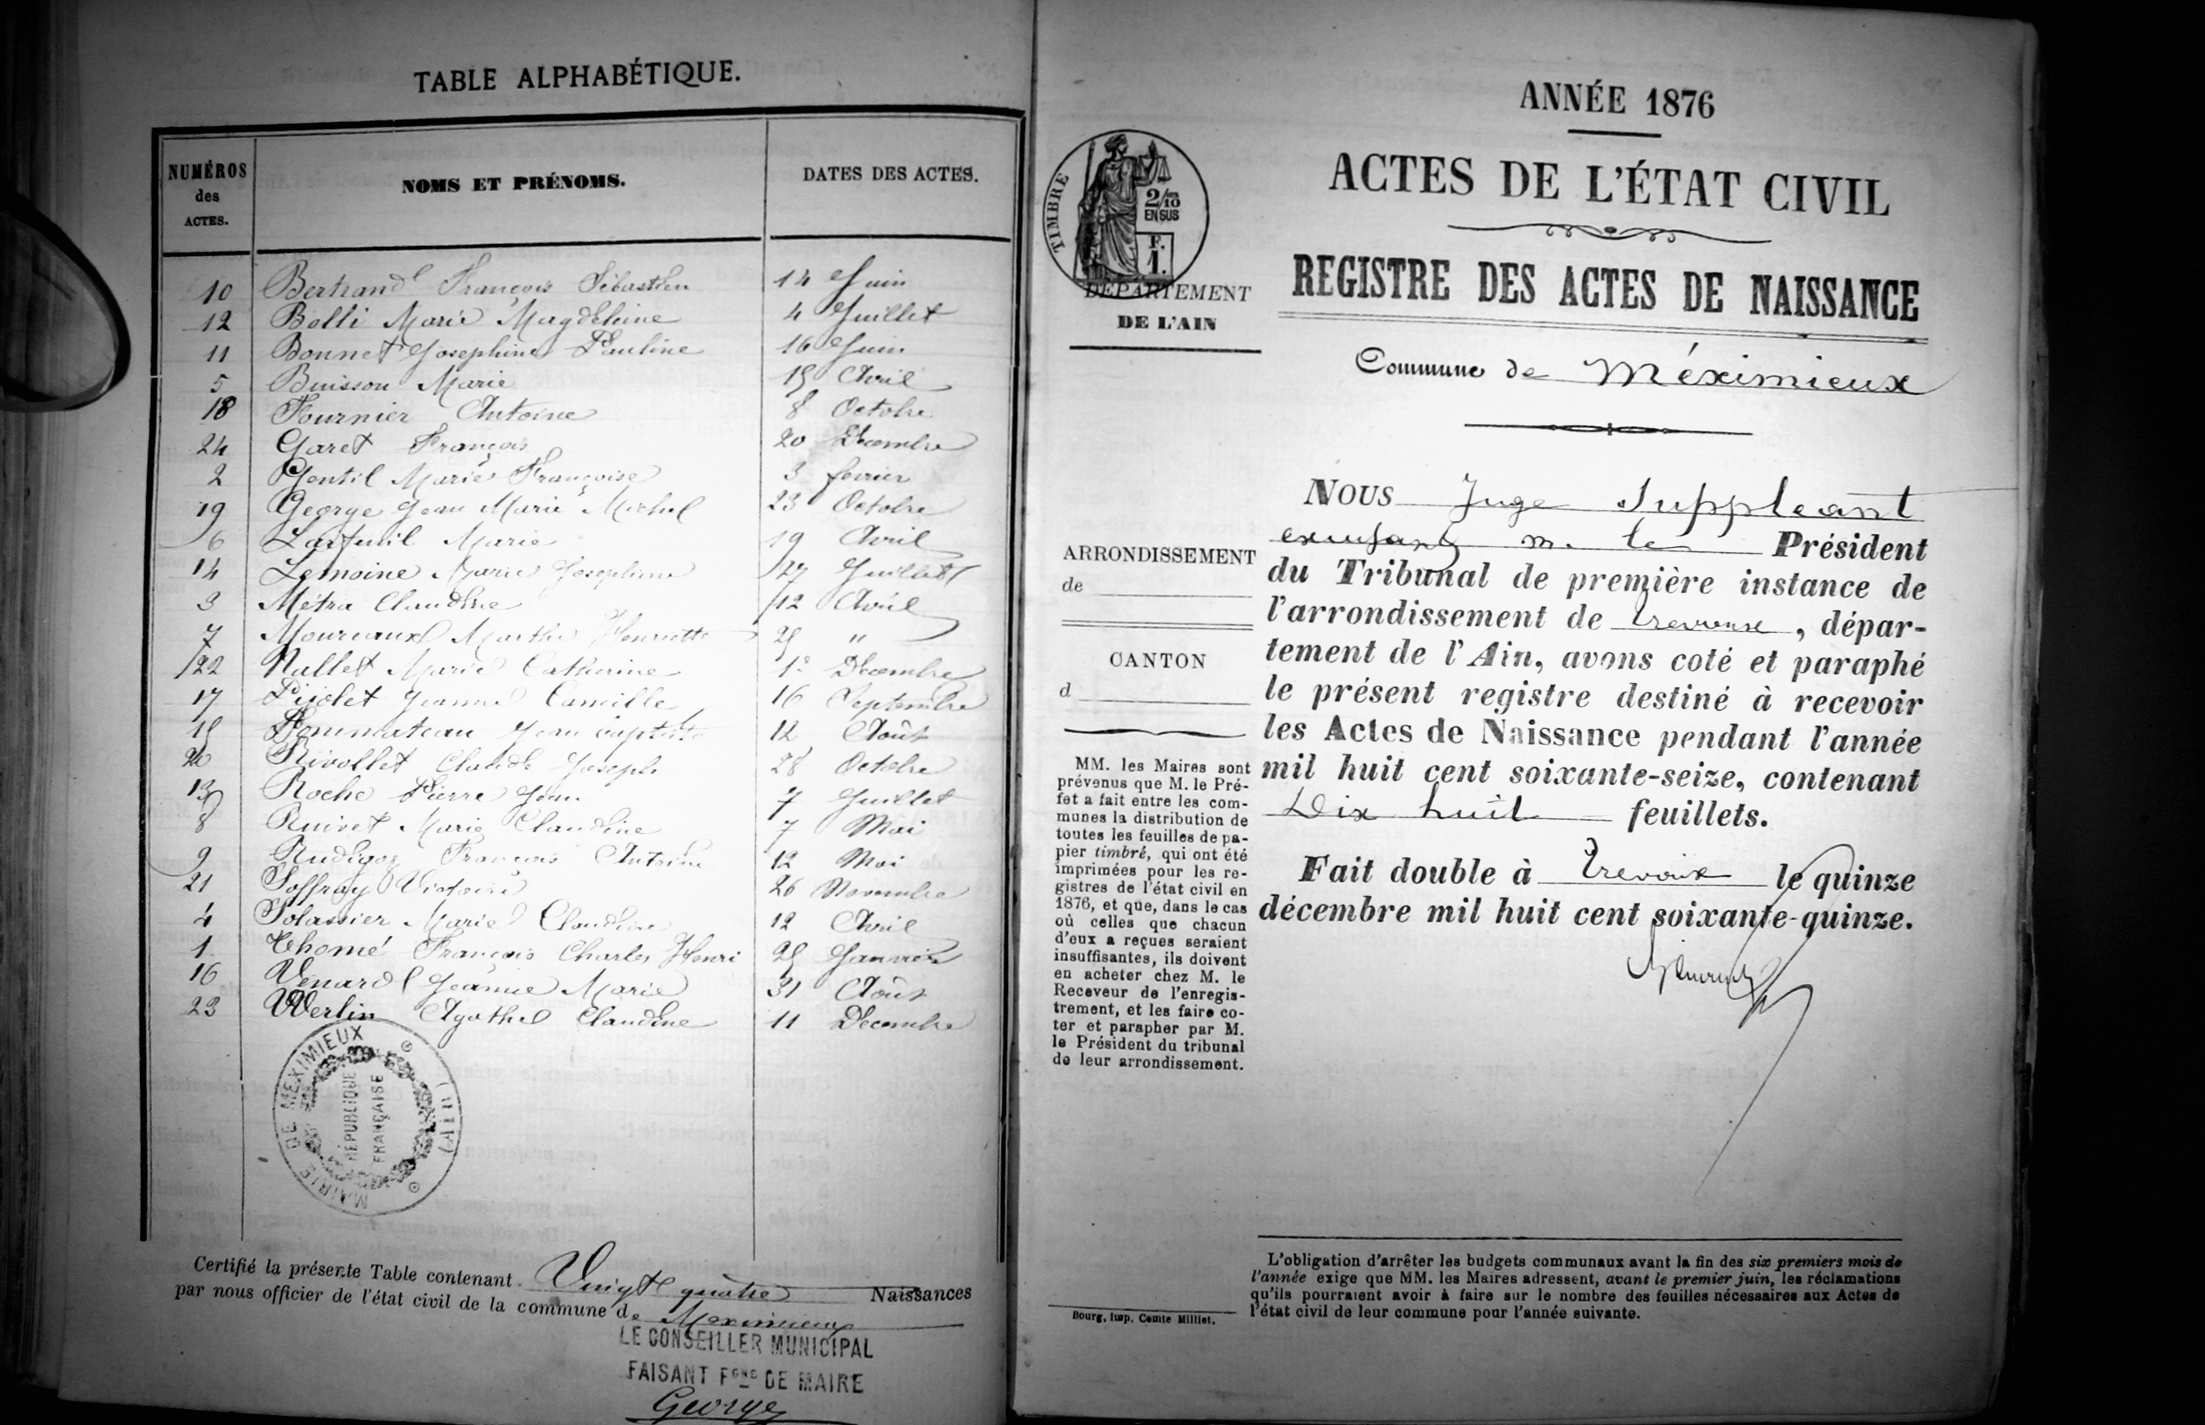 TABLE ALPHABÉTIQUE.
NUMÉROS des ACTES. NOMS ET PRÉNOMS. DATES DES ACTES.
10 Bertrand François Sébastien 14 Juin
12 Bolli Marie Magdeleine 4 Juillet
11 Bonnet Josephine Pauline 16 Juin
5 Buisson Marie 15 Avril
18 Fournier Antoine 8 Octobre
24 Garet François 20 Décembre
2 Gentil Marie Françoise 3 fevrier
19 George Jean Marie Michel 23 Octobre
6 Marie 19 Avril
14 Lemoine Marie Josephine 27 Juillet
3 Métra Claudine 12 Avril
7 Moureaux Marthe Henriette 25 "
22 Nallet Marie Catherine 1er Décembre
17 Pijolet Jeanne Camille 16 Septembre
15 Pommateau Jean baptiste 12 Août
20 Rivollet Claude Joseph 28 Octobre
13 Roche Pierre Jean 7 Juillet
8 Ruivet Marie Claudine 7 Mai
9 Rudigoz François Antoine 12 Mai
21 Soffray Victoire 26 Novembre
4 Marie Claudine 12 Avril
1 Thomé François Charles Henri 25 Janvier
16 Venard Jeanne Marie 31 Août
23 Werlin Agathe Claudine 11 Décembre
MAIRIE DE MEXIMIEUX (AIN)
RÉPUBLIQUE
FRANÇAISE
Certifié la présente Table contenant Vingt quatre Naissances
par nous officier de l'état civil de la commune de Meximieux
LE CONSEILLER MUNICIPAL
FAISANT Fons DE MAIRE
George
ANNÉE 1876
ACTES DE L'ÉTAT CIVIL
REGISTRE DES ACTES DE NAISSANCE
TIMBRE
2/10
EN SUS
F.
1.
DÉPARTEMENT
DE L'AIN
Commune de Méximieux
ARRONDISSEMENT
de
CANTON
d
NOUS Juge Suppleant
m. le Président
du Tribunal de première instance de
l'arrondissement de Trevoux, dépar-
tement de l'Ain, avons coté et paraphé
le présent registre destiné à recevoir
les Actes de Naissance pendant l'année
mil huit cent soixante-seize, contenant
Dix huit feuillets.
Fait double à Trevoux le quinze
décembre mil huit cent soixante-quinze.
MM. les Maires sont
prévenus que M. le Pré-
fet a fait entre les com-
munes la distribution de
toutes les feuilles de pa-
pier timbré, qui ont été
imprimées pour les re-
gistres de l'état civil en
1876, et que, dans le cas
où celles que chacun
d'eux a reçues seraient
insuffisantes, ils doivent
en acheter chez M. le
Receveur de l'enregis-
trement, et les faire co-
ter et parapher par M.
le Président du tribunal
de leur arrondissement.
L'obligation d'arrêter les budgets communaux avant la fin des six premiers mois de
l'année exige que MM. les Maires adressent, avant le premier juin, les réclamations
qu'ils pourraient avoir à faire sur le nombre des feuilles nécessaires aux Actes de
l'état civil de leur commune pour l'année suivante.
Bourg, imp. Comte Milliet.